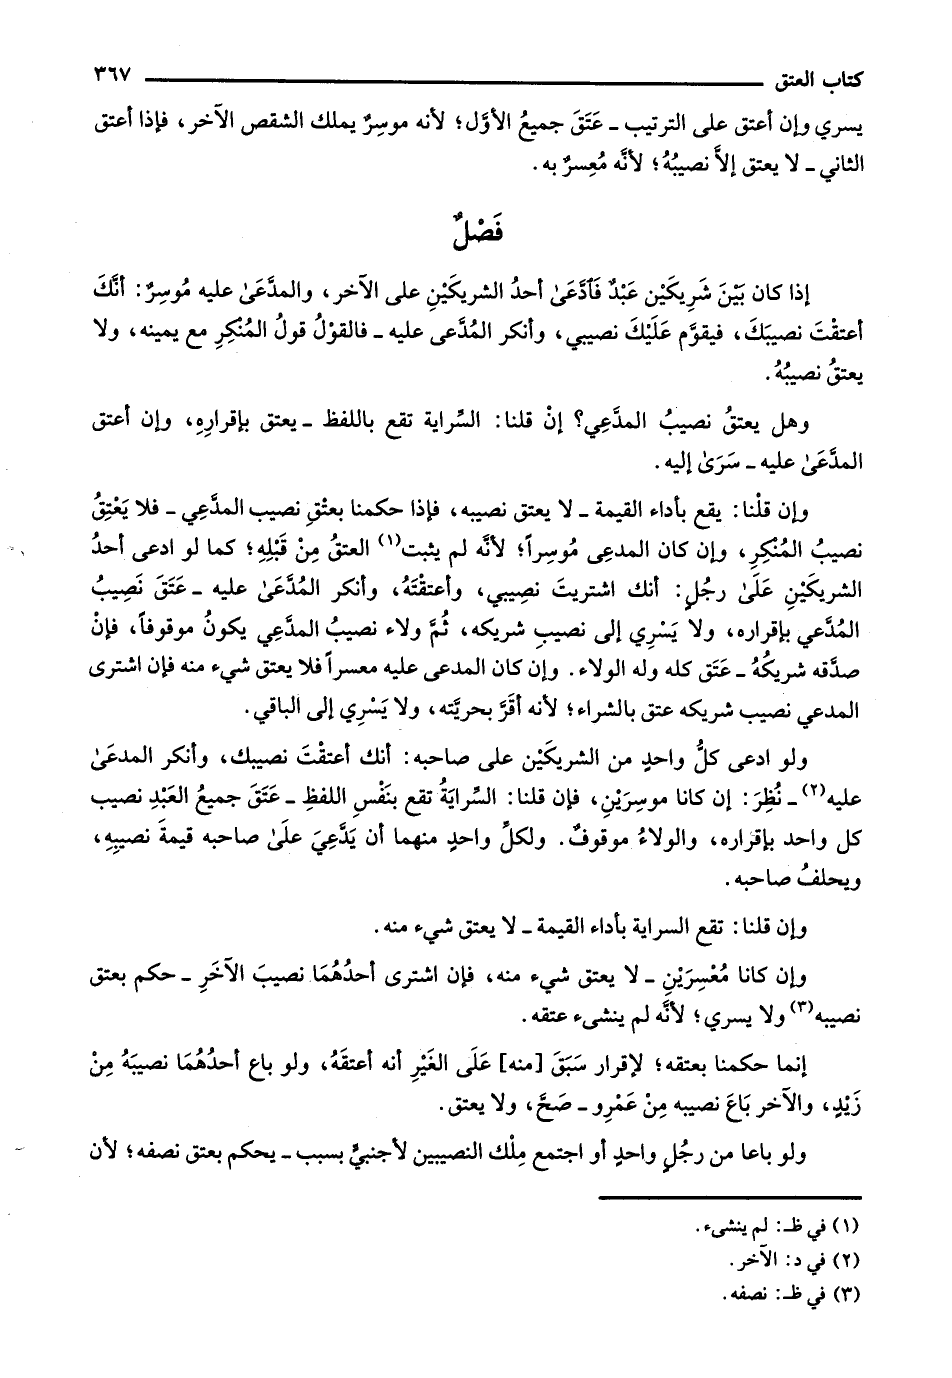 كتاب العتق ٣٦٧
يسري وإن أعتق على الترتيب ـ عَتَقَ جميعُ الأوَّل؛ لأنه موسِرٌ يملك الشقص الآخر، فإذا أعتق
الثاني ـ لا يعتق إلاَّ نصيبُهُ؛ لأنَّه مُعِسرٌ به.
فَصْلٌ
إذا كان بَيْنَ شَرِيكَيْن عَبْدٌ فَٱدَّعَىٰ أحدُ الشريكَيْنِ على الآخر، والمدَّعَىٰ عليه مُوسِرٌ: أنَّكَ
أعتقْتَ نصيبَكَ، فيقوَّم عَلَيْكَ نصيبي، وأنكر المُدَّعى عليه ـ فالقوْلُ قولُ المُنْكِرِ مع يمينه، ولا
يعتقُ نصيبُهُ.
وهل يعتقُ نصيبُ المدَّعِي؟ إنْ قلنا: السِّراية تقع باللفظ ـ يعتق بإقرارِهِ، وإن أعتق
المدَّعَىٰ عليه ـ سَرَىٰ إليه.
وإن قلْنا: يقع بأداء القيمة ـ لا يعتق نصيبه، فإذا حكمنا بعتْقِ نصيب المدَّعِي ـ فلا يَعْتِقُ
نصيبُ المُنْكِرِ، وإن كان المدعِى مُوسِراً؛ لأنَّه لم يثبت(١) العتقُ مِنْ قَبْلِهِ؛ كما لو ادعى أحدُ
الشريكَيْنِ عَلَىٰ رجُلٍ: أنك اشتريتَ نصِيبي، وأعتقْتَهُ، وأنكر المُدَّعَىٰ عليه ـ عَتَقَ نَصِيبُ
المُدَّعي بإقراره، ولا يَسْرِي إلى نصيبِ شريكه، ثُمَّ ولاء نصيبُ المدَّعِي يكونُ موقوفاً، فإنْ
صدَّقه شريكُهُ ـ عَتَق كله وله الولاء. وإن كان المدعى عليه معسراً فلا يعتق شيء منه فإن اشترى
المدعي نصيب شريكه عتق بالشراء؛ لأنه أقَرَّ بحريَّته، ولا يَسْرِي إلى الباقي.
ولو ادعى كلُّ واحدٍ من الشريكَيْن على صاحبه: أنك أعتقْتَ نصيبك، وأنكر المدعَىٰ
عليه(٢) ـ نُظِرَ: إن كانا موسِرَيْنِ، فإن قلنا: السِّرايَةُ تقع بنَفْس اللفظِ ـ عَتَقَ جميعُ العَبْدِ نصيب
كل واحد بإقراره، والولاءُ موقوفٌ. ولكلِّ واحدٍ منهما أن يَدَّعِيَ علَىٰ صاحبه قيمةَ نصيبِهِ،
ويحلفُ صاحبه.
وإن قلنا: تقع السراية بأداء القيمة ـ لا يعتق شيء منه.
وإن كانا مُعْسِرَيْنِ ـ لا يعتق شيء منه، فإن اشترى أحدُهُمَا نصيبَ الآخَرِ ـ حكم بعتق
نصيبه(٣) ولا يسري؛ لأنَّه لم ينشىء عتقه.
إنما حكمنا بعتقه؛ لإقرار سَبَقَ [منه] عَلَى الغَيْرِ أنه أعتقَهُ، ولو باع أحدُهُمَا نصيبَهُ مِنْ
زَيْدٍ، والآخر بَاعَ نصيبه مِنْ عَمْرٍو ـ صَحَّ، ولا يعتق.
ولو باعا من رجُلٍ واحدٍ أو اجتمع مِلْك النصيبين لأجنبيٍّ بسبب ـ يحكم بعتق نصفه؛ لأن
(١) في ظـ: لم ينشىء.
(٢) في د: الآخر.
(٣) في ظـ: نصفه.